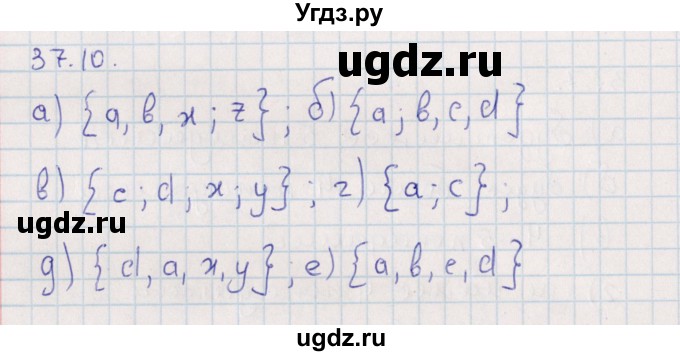 Угдз.ру
37.10.
ugdz.ru
а) {a, b, x; z}; б) {a; b, c, d}
в) {c; d; x; y}; г) {a; c};
ugdz.ru
д) {d, a, x, y}; е) {a, b, e, d}
ugdz.ru